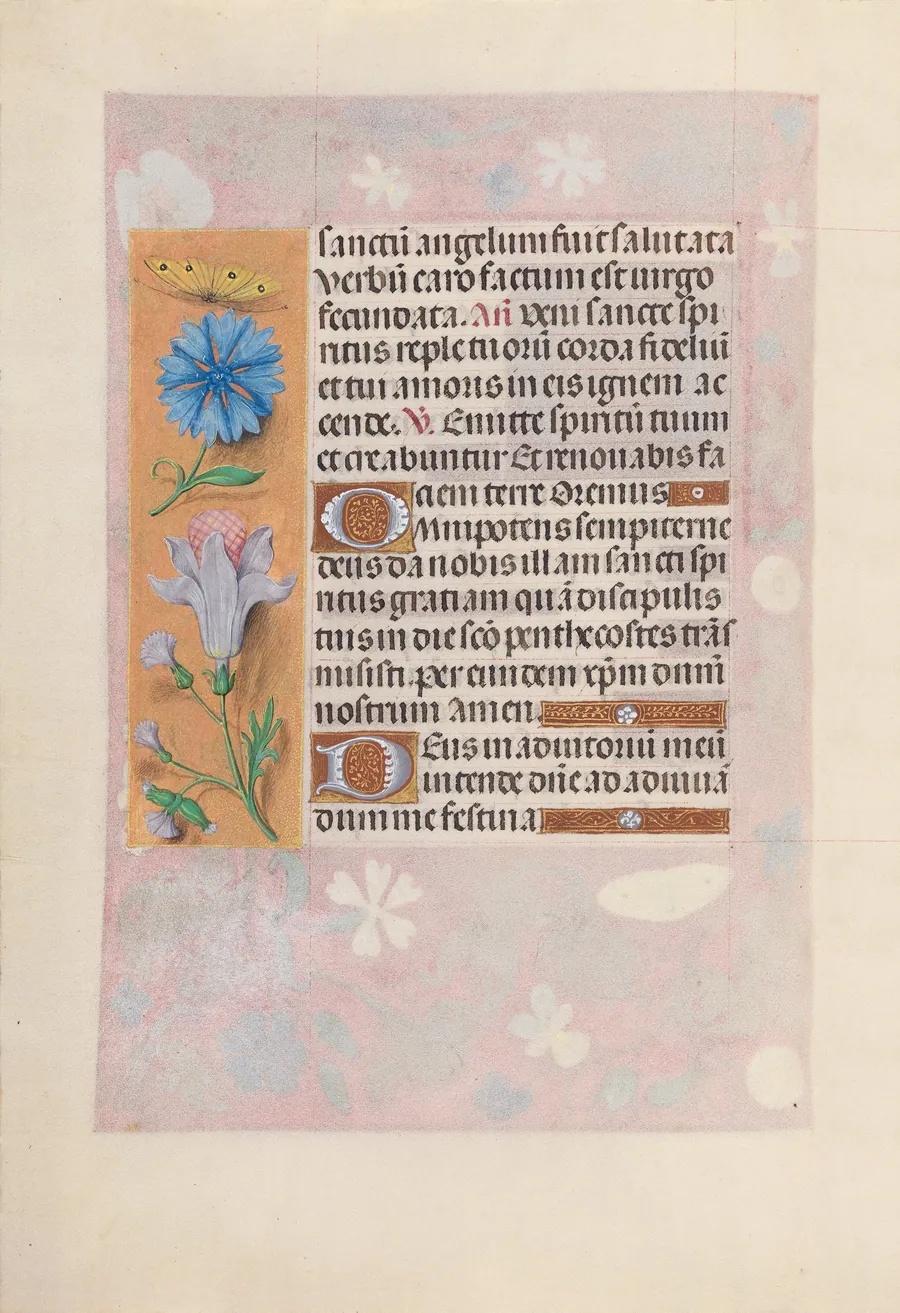 sanctū angelum fuit salutata
verbū caro factum est uirgo
fecundata. Añ Veni sancte spi
ritus reple tuorū corda fideliū
et tui amoris in eis ignem ac
cende. V̶. Emitte spiritū tuum
et creabuntur Et renouabis fa
ciem terre Oremus
OMnipotens sempiterne
deus da nobis illam sancti spi
ritus gratiam quā discipulis
tuis in die scō penthecostes trās
misisti. per eundem xp̄m dnm̄
nostrum Amen.
DEus in adiutoriū meū
intende dn̄e ad adiuuā
dum me festina